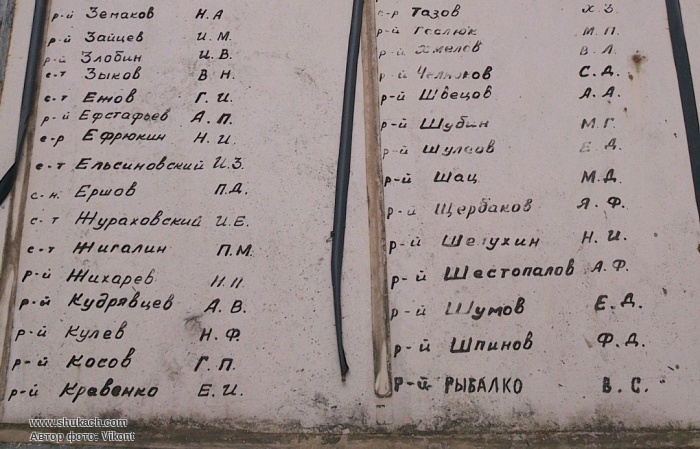 р-й Земаков Н.А
р-й Зайцев И.М.
р-й Злобин И.В.
с-т Зыков В.Н.
с-т Ежов Г.И.
р-й Ефстафьев А.П.
е-р Ефрюкин Н.И.
с-т Ельсиновский И.З.
с.н. Ершов П.Д.
с-т Жураховский И.Е.
с-т Жигалин П.М.
р-й Жихарев
р-й Кудрявцев А.В.
р-й Кулев Н.Ф.
р-й Косов Г.П.
р-й Кравенко Е.И.
с-р Тазов Х.З.
р-й М.П.
р-й Хмелев В.Л.
р-й С.Д.
р-й Швецов А.А.
р-й Шубин М.Г.
р-й Е.Д.
р-й Шац М.Д.
р-й Щербаков Я.Ф.
р-й Шелухин Н.И.
р-й Шестопалов А.Ф.
р-й Шумов Е.Д.
р-й Шпинов Ф.Д.
Р-й РЫБАЛКО В.С.
www.shukach.com
Автор фото: Vikont